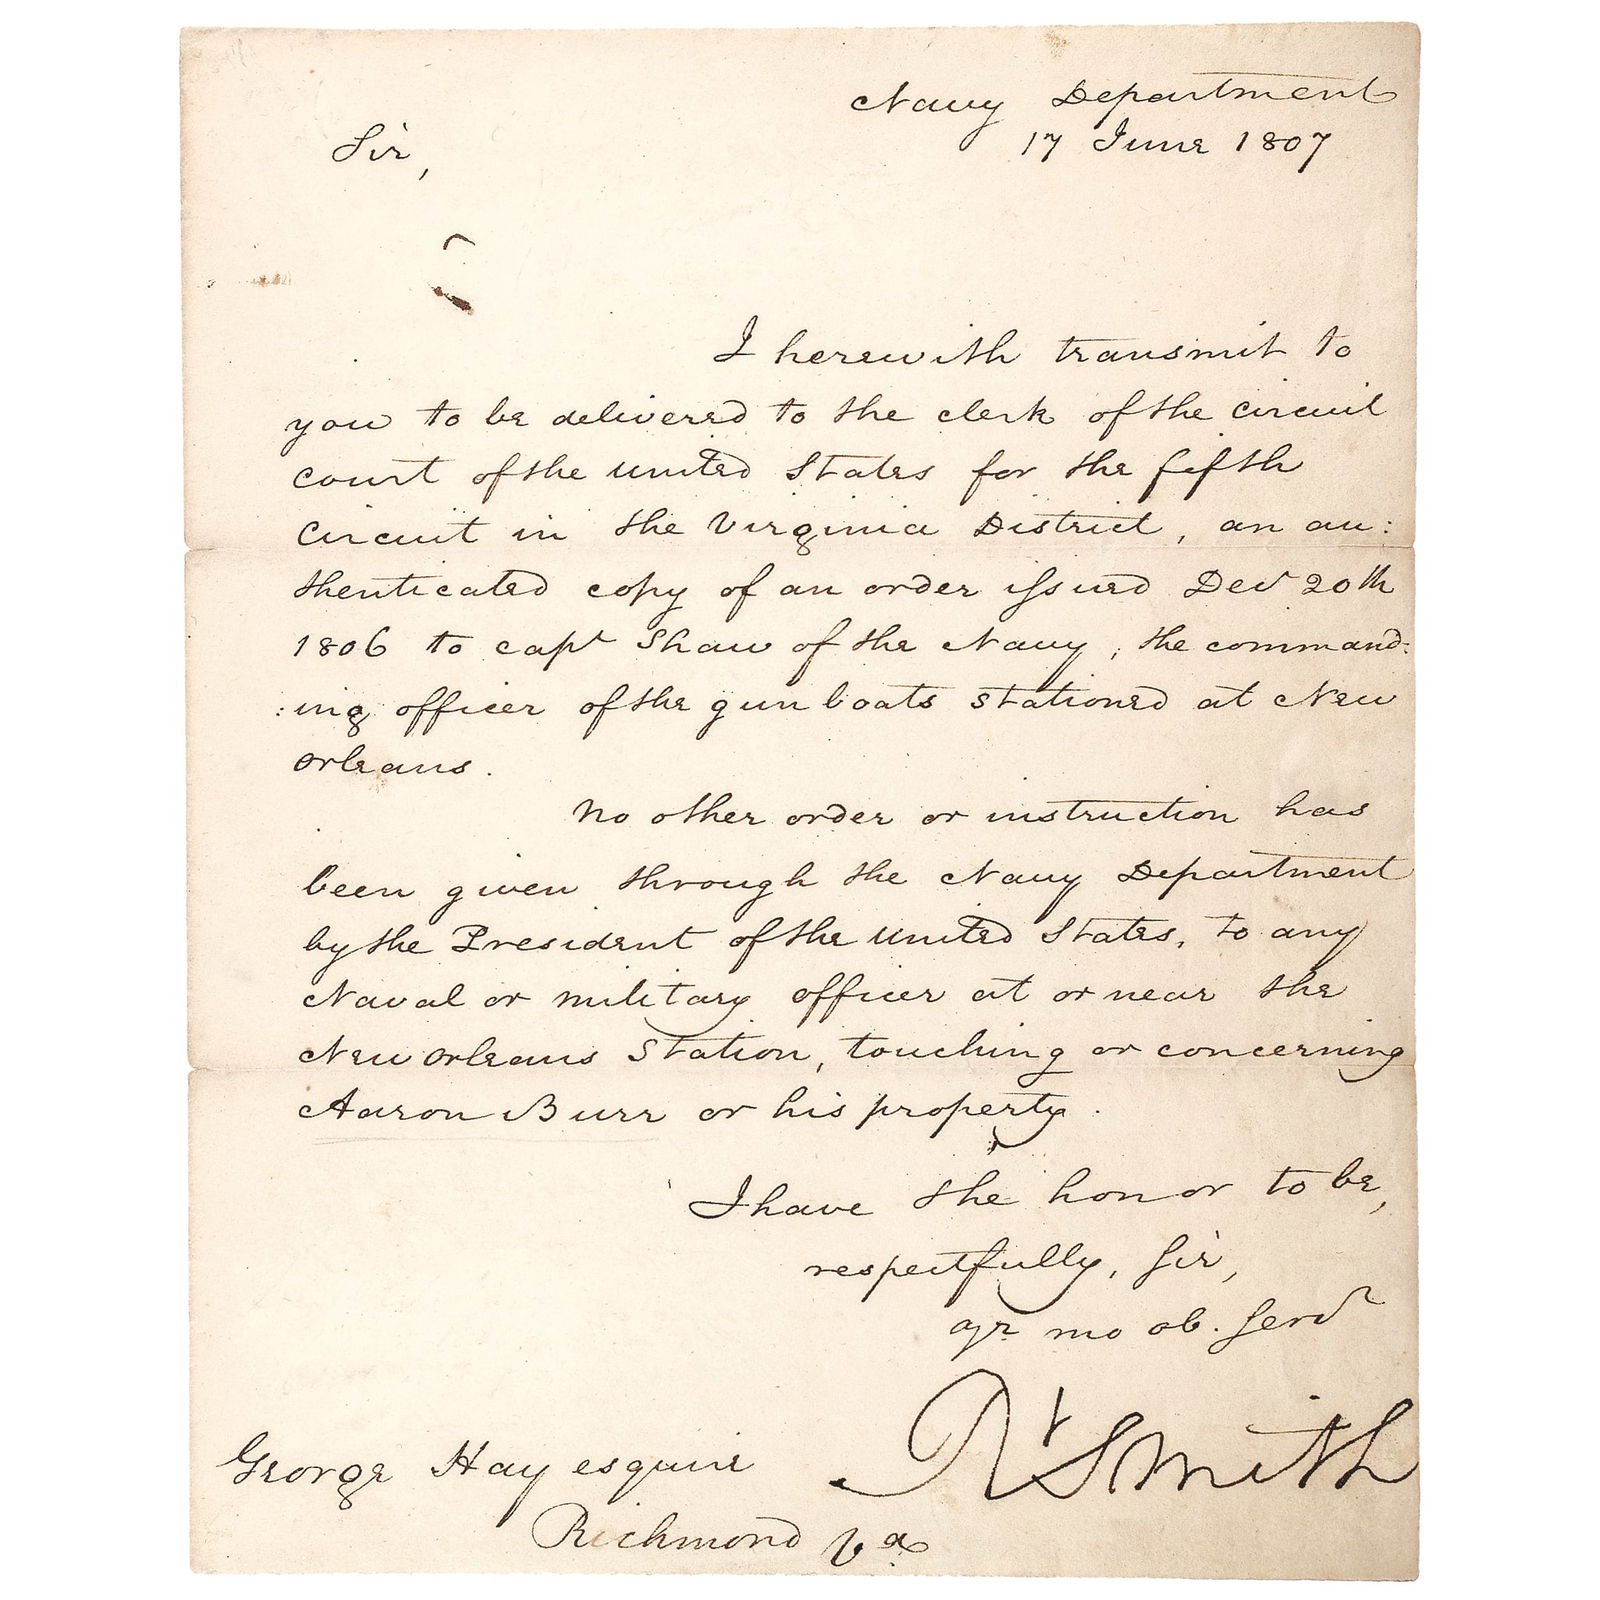 Navy Department
17 June 1807
Sir,
I herewith transmit to
you to be delivered to the clerk of the circuit
court of the united States for the fifth
Circuit in the Virginia District, an au:
thenticated copy of an order issued Decr 20th
1806 to capt Shaw of the Navy, the command:
:ing officer of the gun boats stationed at New
orleans.
No other order or instruction has
been given through the Navy Department
by the President of the united States, to any
Naval or military officer at or near the
New orleans Station, touching or concerning
Aaron Burr or his property.
I have the honor to be,
respectfully, Sir,
yr mo ob. Servt
Rt Smith
George Hay esquire
Richmond Va